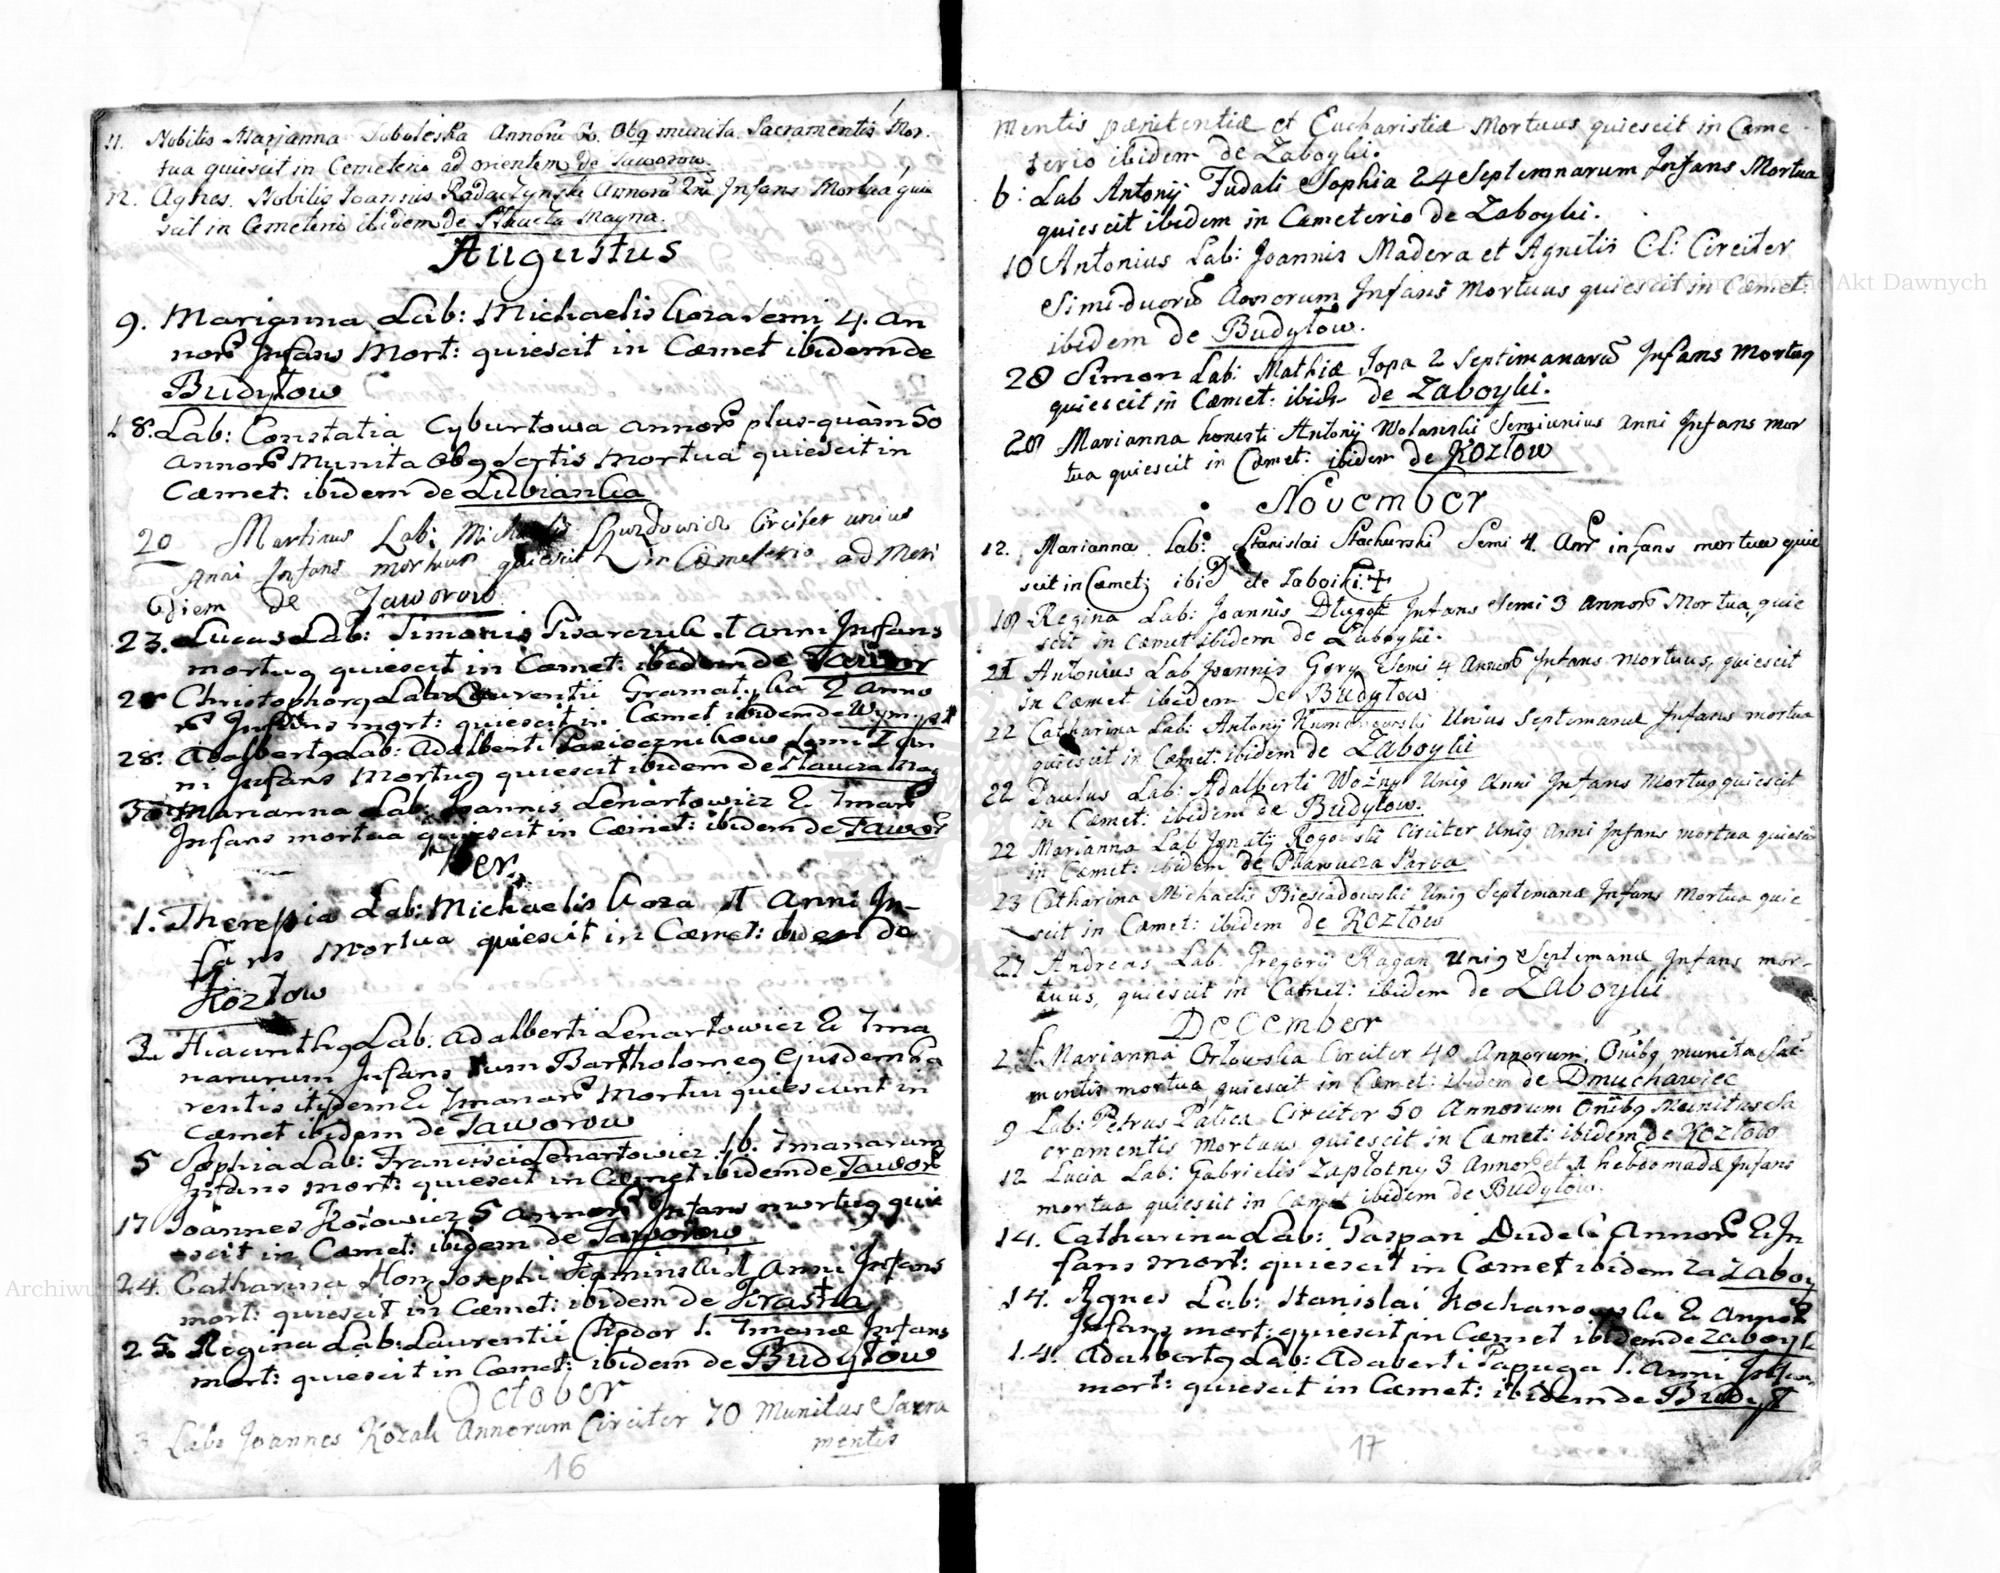 11. Nobilis Marjanna Soboleska Annoru 60. Obq munita Sacramentis Mor.
tua quiescit in Cemeterio ad orientem de Jaworow
12. Agnes. Nobilis Joannis Radaczynski Annoru Infans Mortua quie
scit in Cemeterio ibidem de Magna.
Augustus
9. Marianna Lab: Michaelis Koza Semi 4. an
nor Infans Mort: quiescit in Cæmet ibidem de
Budyłow
18. Lab: Constatia Cyburtowa annor plus quàm 50
annor Munita Obq Sctis Mortua quiescit in
Cæmet: ibidem de Lubianka
20 Martinus Lab: Michaelis Circiter unius
Anni Infans mortuus quiescit in Cæmeterio ad Meri
diem de Jaworow
23. Lucas Lab: Simonis Pisarczuk 1 anni Infans
mortuq quiescit in Cæmet: ibidem de Jawor
Christophorq Lab: Laurentii Gramatyka 2 anno
r Infans mort: quiescit in Cæmet ibidem de
28. Adalbertq Lab: Adalberti Semi 1 an
ni Infans Mortuq quiescit ibidem de Mag
30 Marianna Lab: Joannis Lenartowicz 2 7mar
Infans mortua quiescit in Cæmet: ibidem de Jawor
7ber.
1. Theresia Lab: Michaelis Koza 1 Anni In-
fans Mortua quiescit in Cæmet: ibidem de
Kozłow
3. Hiacinthq Lab: Adalberti Lenartowicz 2 7ma
narurum Infans tum Bartholomeq Ejusdem Pa
rentis itidem 2 7manar Mortui quiescunt in
Cæmet ibidem de Jaworow
5 Sophia Lab: Francisci Lenartowicz 16. 7manarum
Infans mort: quiescit in Cæmet ibidem de Jawor
17 Joannes Kozowicz 5 annor Infans mortuq quie
scit in Cæmet: ibidem de Jaworow
24. Catharina Hon Josephi 1 Anni Infans
mort: quiescit in Cæmet: ibidem de
25. Regina Lab: Laurentii Chodor 1. 7manæ Infans
mort: quiescit in Cæmet: ibidem de Budyłow
October
3 Lab: Joannes Kozak Annorum Circiter 70 Munitus Sacra
mentis
16
mentis pænitentiæ et Eucharistiæ Mortuus quiescit in Cæme
terio ibidem de Zaboyki.
6: Lab Antonij Fudali Sophia 24 Septemnarum Infans Mortua
quiescit ibidem in Cæmeterio de Zaboyki.
10 Antonius Lab: Joannis Madera et Agnetis Cl: Circiter
Simi-duoru Annorum Infans Mortuus quiescit in Cæmet:
ibidem de Budyłow.
28 Simon Lab: Mathiæ Jopa 2 Septimanaru Infans Mortuq
quiescit in Cæmet: ibid de Zaboyki.
28 Marianna honesti Antonij Wolanski Semiunius anni Infans mor
tua quiescit in Cæmet: ibidem de Kozłow
November
12. Marianna Lab: Stanislai Stachurski Semi 4. Anr infans mortua quie
scit in Cæmet; ibid de Taboiki.
18 Regina Lab: Joannis Długosz Infans Semi 3 annor Mortua, quie
scit in cæmet ibidem de Zaboyki.
21 Antonius Lab Joannis Gory Semi 4 annor Infans mortuus, quiescit
in Cæmet ibidem de Budyłow
22 Catharina Lab: Antonij Unius Septemanæ Infans mortua
quiescit in Cæmet: ibidem de Zaboyki
22 Paulus Lab: Adalberti Woźny Uniq Anni Infans Mortuq quiescit
in Cæmet: ibidem de Budyłow.
22 Marianna Lab Ignatij Rogowski Circiter Uniq Anni Infans mortua quiescit
in Cæmet: ibidem de Parva
23 Catharina Michaelis Biesiadowski Uniq Septemanæ Infans Mortua quie
scit in Cæmet: ibidem de Kozłow
27 Andreas Lab. Gregorij Ragan Uniq Septemanæ Infans mor-
tuus, quiescit in Cæmet: ibidem de Zaboyki
December
2. Marianna Orłowska Circiter 40 Annorum, Onibq munita Sac
mentis mortua, quiescit in Cæmet: ibidem de Dmuchawiec
9 Lab: Petrus Palica Circiter 50 Annorum Onibq Munitus Sa
cramentis Mortuus quiescit in Cæmet: ibidem de Kozłow
12 Lucia Lab: Gabrielis Zapłotny 3 Annor et 1 hebdomadæ Infans
mortua quiescit in Cæmet ibidem de Budyłow.
14. Catharina Lab: Gaspari Dudek Annor 2 In
fans mort: quiescit in Cæmet ibidem Za Zaboy
14. Agnes Lab: Stanislai Kochanowski 2 annor
Infans mort: quiescit in Cæmet ibidem de Zaboyk
14. Adalbertq Lab: Adalberti Papuga 1. anni Infan
mort: quiescit in Cæmet: ibidem de Budył
17
Archiwum Główne Akt Dawnych